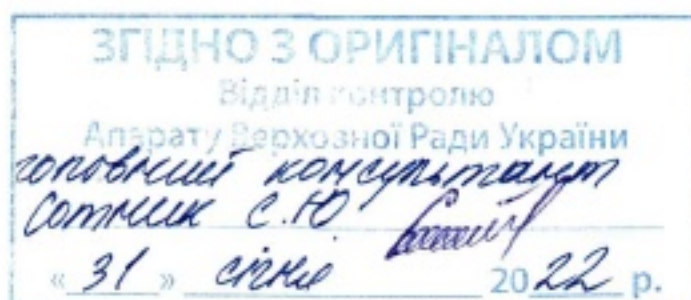 ЗГІДНО З ОРИГІНАЛОМ
Відділ контролю
Апарату Верховної Ради України
головний консультант
Сотник С.Ю
« 31 » січня 2022 р.